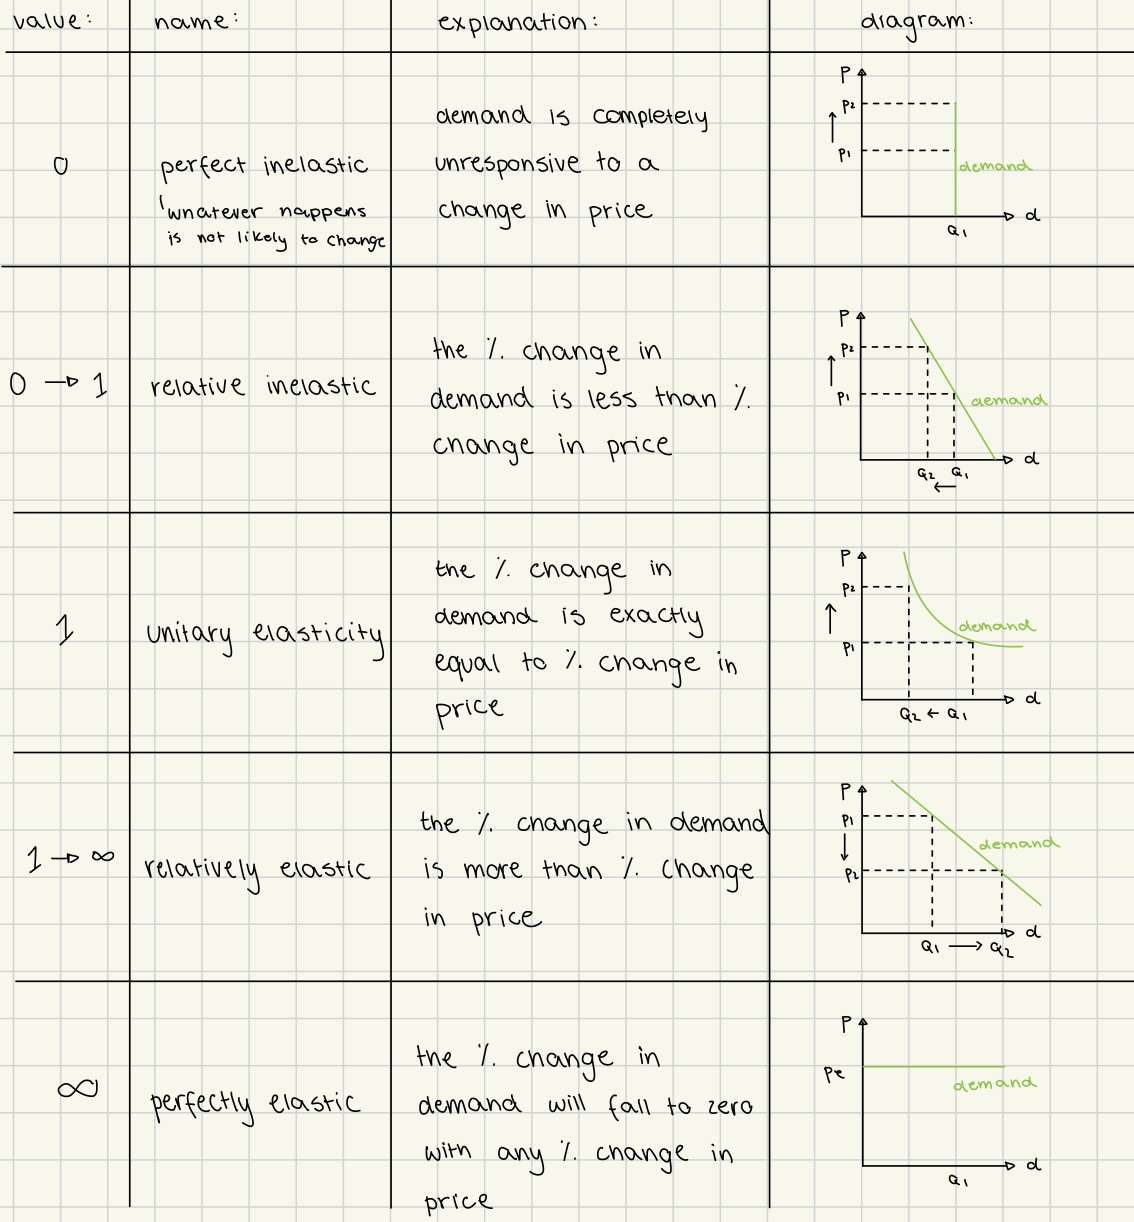 value: name: explanation: diagram:
0
perfect inelastic
whatever happens
is not likely to change
demand is completely
unresponsive to a
change in price
P
P2
P1
demand
d
Q1
0 → 1
relative inelastic
the % change in
demand is less than %
change in price
P
P2
P1
demand
d
Q2 Q1
←
1
unitary elasticity
the % change in
demand is exactly
equal to % change in
price
P
P2
demand
P1
d
Q2 ← Q1
1 → ∞
relatively elastic
the % change in demand
is more than % change
in price
P
P1
demand
P2
d
Q1 → Q2
∞
perfectly elastic
the % change in
demand will fall to zero
with any % change in
price
P
Pe
demand
d
Q1